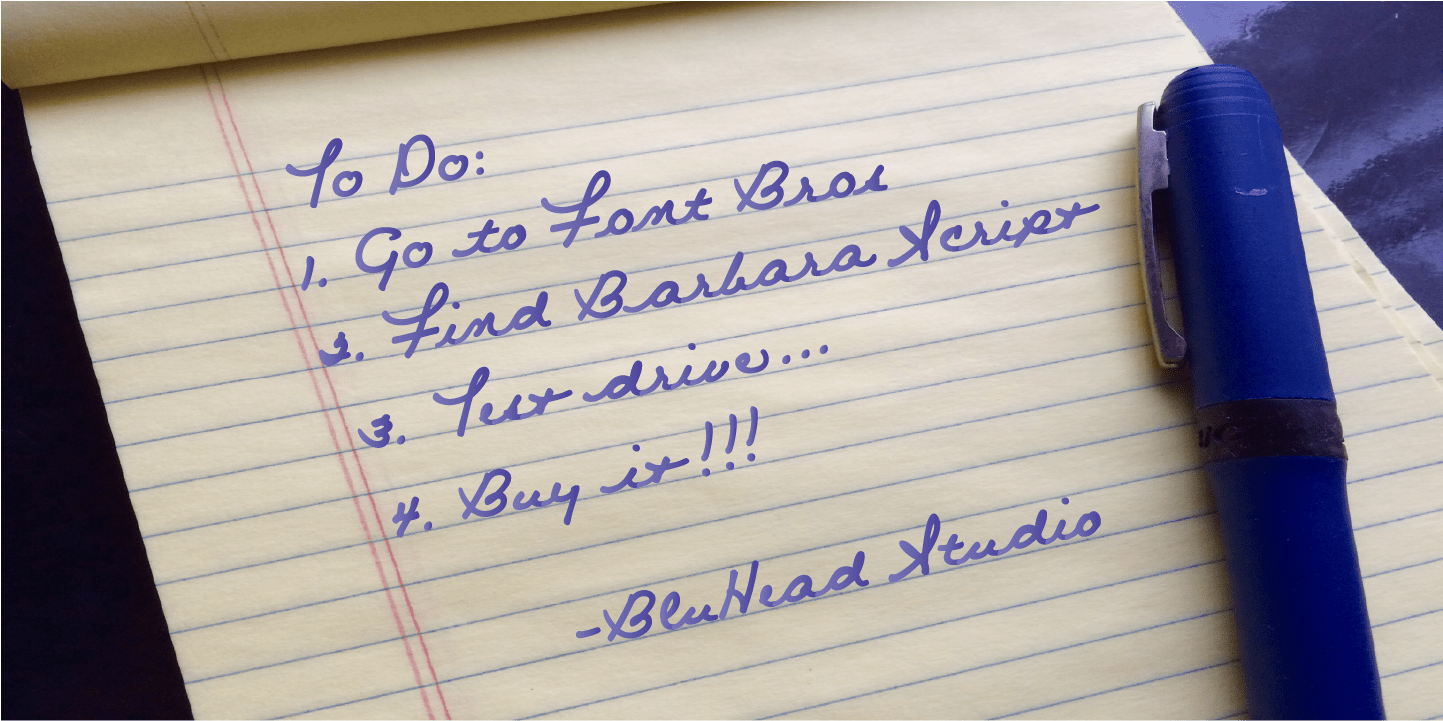 To Do:
1. Go to Font Bros
2. Find Barbara Script
3. Test drive...
4. Buy it!!!
-BluHead Studio